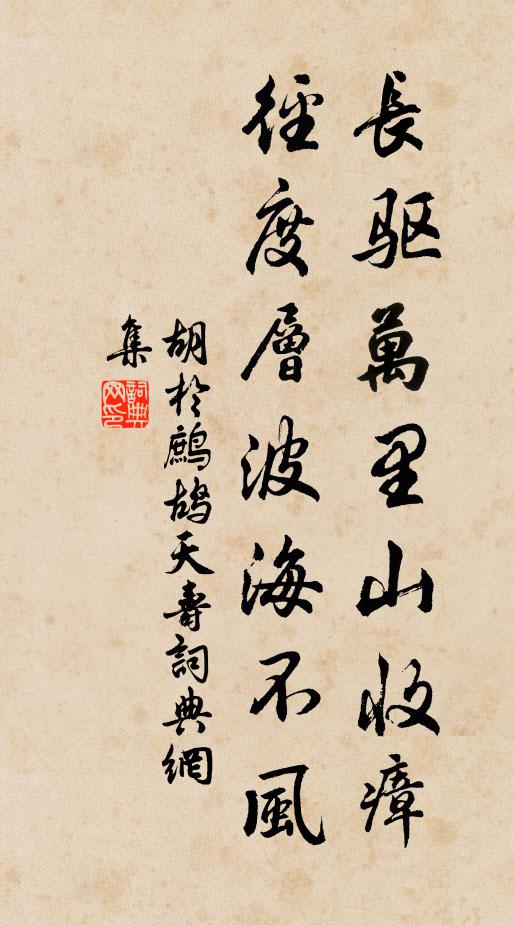 長驱萬里山收瘴
徑度層波海不風
胡於鷓鴣天壽詞典網
集
詞典
网印